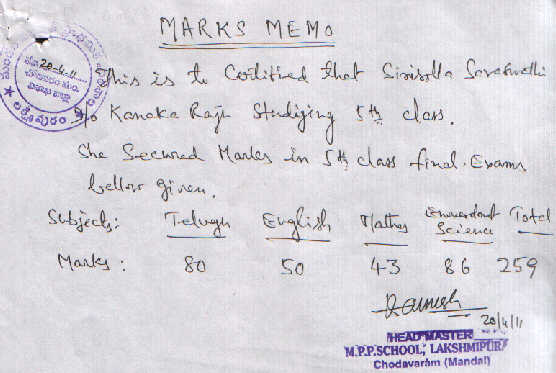 MARKS MEMO
20-4-11
This is to Certified that Sirisolla Saraswathi
D/o Kanaka Raju Studying 5th class.
She Secured Marks in 5th class final Exams
bellow given.
Subjects: Telugu English Mathes Science Total
Marks : 80 50 43 86 259
Ramesh
20/4/11
HEAD MASTER
M.P.P.SCHOOL, LAKSHMIPUR
Chodavaram (Mandal)